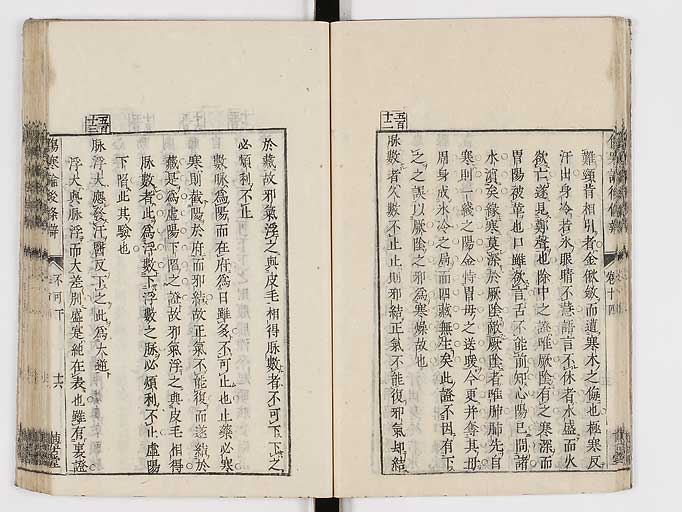 傷寒論後條辨
卷十四
難頸背相引者金歛而遺寒木之儌也極寒反
汗出身冷若氷眼睛不慧語言不休者水盛而火
欲亡遂見鄭聲也除中之證唯厥陰有之寒深而
胃陽被革也口雖欲言舌不能前知心陽已
水瀆矣緣寒莫深於厥陰敵厥陰者唯肺肺先自
寒則一綫之陽金恃胃母之送
周身成氷冷之局而
之之誤以厥陰之邪爲寒燥故也
五百
十二
脉數者久數不止止則邪結正氣不能復邪氣却結
於藏故邪氣浮之與皮毛相得脉數者不可下下之
必煩利不止
數脉爲陽而在府爲日雖多不可止也止藥必寒
寒則截陽於府而邪結故正氣不能復而遂結於
藏是爲虛陽下陷之證故邪氣浮之與皮毛相得
脉數者此爲浮數下浮數之脉必煩利不止虛陽
下陷此其驗也
五百
十三
脉浮大應發汗醫反下之此爲大逆
浮大與脉浮而大差別盛寔純在表也雖有裏證
傷寒論後條辨
不可下
十六